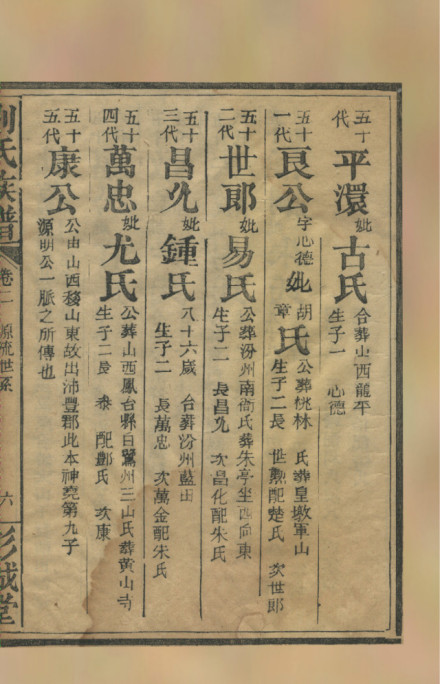 五十代 平澴 妣古氏 合葬山西龍平
生子一 心德
五十一代 良公 字心德 妣胡章氏 公葬桃林 氏葬皇墩軍山
生子二 長世勲配楚氏 次世郎
五十二代 世郎 妣易氏 公葬汾州南衙氏葬朱亭坐西向東
生子二 長昌允 次昌化配朱氏
五十三代 昌允 妣鍾氏 八十六歲 合葬汾州藍田
生子二 長萬忠 次萬金配朱氏
五十四代 萬忠 妣尤氏 公葬山西鳳台縣白鷺州三山氏葬黄山寺
生子二長 泰 配鄷氏 次康
五十五代 康公 公由山西移山東故出沛豐郡此本神堯第九子
源明公一脈之所傳也
劉氏族譜 卷二 源流世系 六 彭城堂